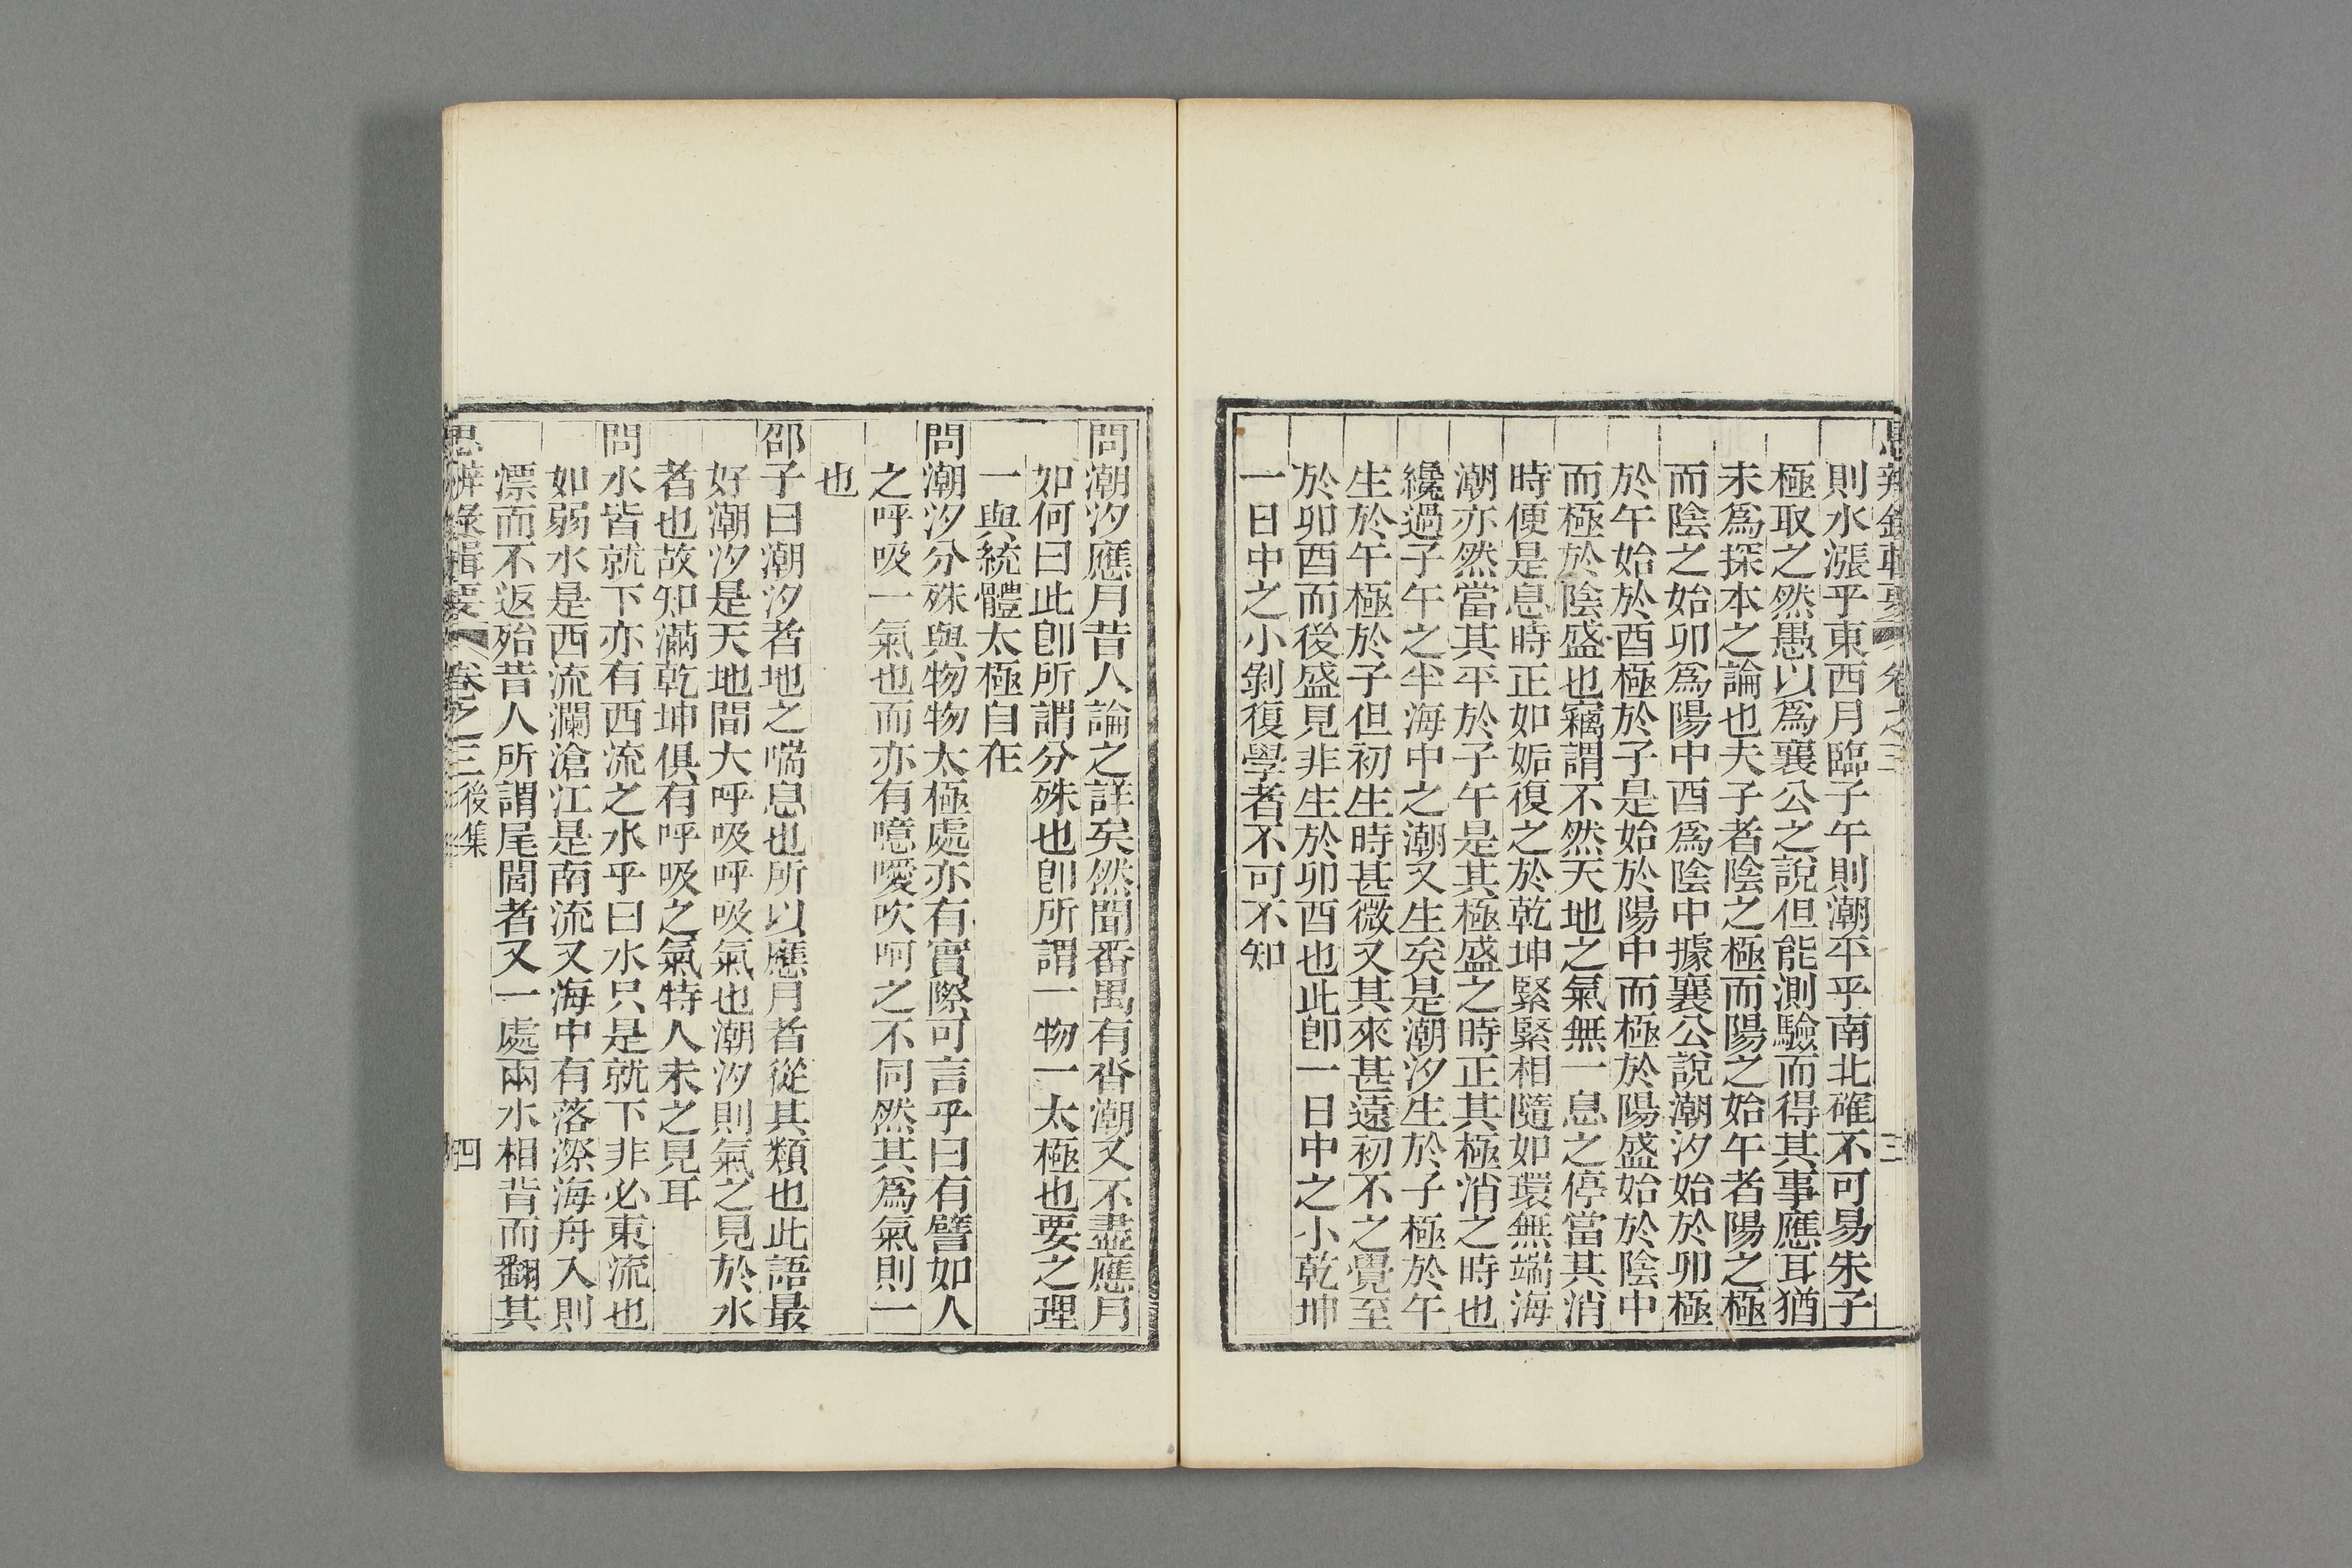 思辨錄輯要 卷之三 三
則水漲乎東西月臨子午則潮平乎南北確不可易朱子
極取之然愚以爲襄公之說但能測驗而得其事應耳猶
未爲探本之論也夫子者陰之極而陽之始午者陽之極
而陰之始卯爲陽中酉爲陰中據襄公說潮汐始於卯極
於午始於酉極於子是始於陽中而極於陽盛始於陰中
而極於陰盛也竊謂不然天地之氣無一息之停當其消
時便是息時正如姤復之於乾坤緊緊相隨如環無端海
潮亦然當其平於子午是其極盛之時正其極消之時也
纔過子午之半海中之潮又生矣是潮汐生於子極於午
生於午極於子但初生時甚微又其來甚遠初不之覺至
於卯酉而後盛見非生於卯酉也此卽一日中之小乾坤
一日中之小剝復學者不可不知
問潮汐應月昔人論之詳矣然聞番禺有沓潮又不盡應月
如何曰此卽所謂分殊也卽所謂一物一太極也要之理
一與統體太極自在
問潮汐分殊與物物太極處亦有實際可言乎曰有譬如人
之呼吸一氣也而亦有噫噯吹呵之不同然其爲氣則一
也
邵子曰潮汐者地之喘息也所以應月者從其類也此語最
好潮汐是天地間大呼吸呼吸氣也潮汐則氣之見於水
者也故知滿乾坤俱有呼吸之氣特人未之見耳
問水皆就下亦有西流之水乎曰水只是就下非必東流也
如弱水是西流瀾滄江是南流又海中有落漈海舟入則
漂而不返殆昔人所謂尾閭者又一處兩水相背而翻其
思辨錄輯要 卷之三 後集 四